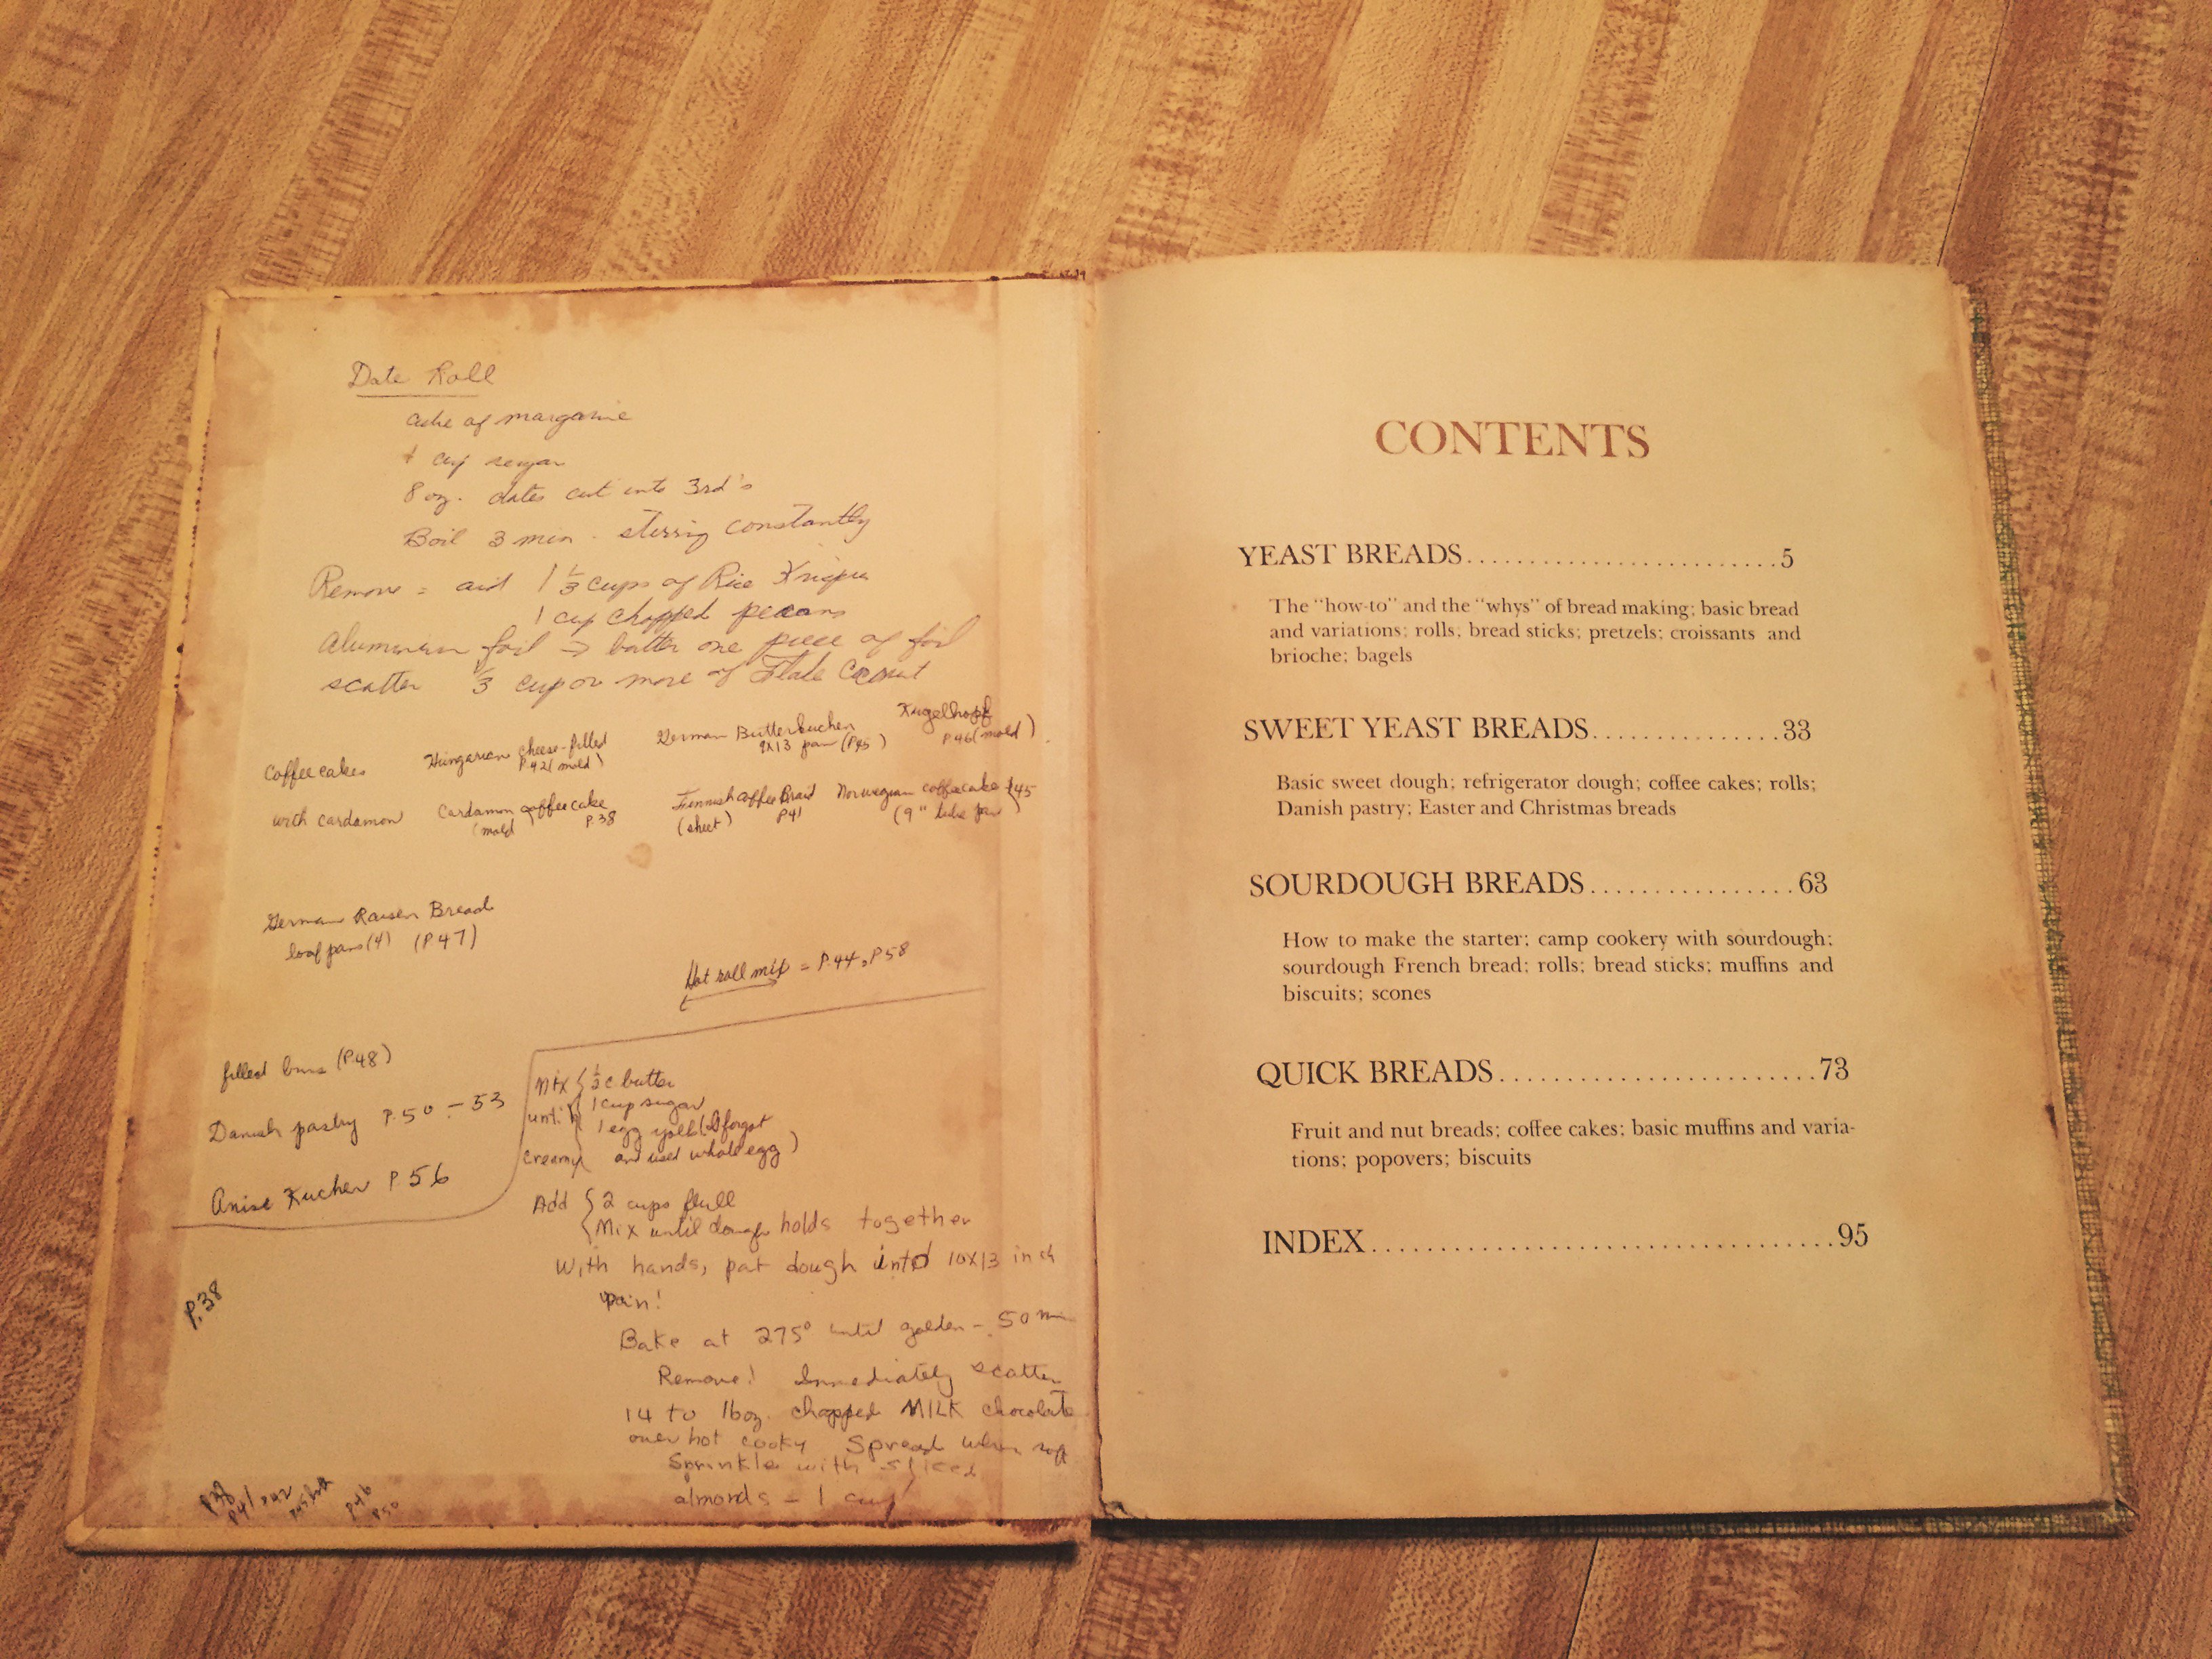 Date Roll
cube of margarine
1 cup sugar
8 oz. dates cut into 3rd's
Boil 3 min. stirring constantly
Remove = add 1 1/3 cups of Rice
1 cup chopped pecans
Aluminum foil → butter one piece of foil
scatter 1/3 cup or more of Flake
Coffee cakes
Hungarian cheese-filled
P.42 (mold)
German Butterkuchen
9X13 pan (P45)
Kugelhopf
P46 (mold)
with cardamon
Cardamon coffee cake
(mold) P.38
Finnish Coffee Braid
(sheet) P41
Norwegian coffeecake P45
(9" tube pan)
German Raisen Bread
loaf pans (4) (P47)
Hot roll mix = P.44, P58
filled buns (P.48)
Danish pastry P.50-53
Anise Kuchen P.56
Mix { 1/2 c butter
until { 1 cup sugar
1 egg yolk (I forgot
creamy and used whole egg)
Add { 2 cups
{ Mix until dough holds together
With hands, pat dough into 10X13 inch
pan!
Bake at 275° until golden - 50 min
Remove! Immediately scatter
14 to 16oz. chopped MILK chocolate
over hot cooky Spread when soft
Sprinkle with sliced
almonds - 1 cup
P.38
P46
P50
CONTENTS
YEAST BREADS.........................5
The "how-to" and the "whys" of bread making; basic bread
and variations; rolls, bread sticks; pretzels; croissants and
brioche; bagels
SWEET YEAST BREADS...............33
Basic sweet dough; refrigerator dough; coffee cakes; rolls;
Danish pastry; Easter and Christmas breads
SOURDOUGH BREADS................63
How to make the starter; camp cookery with sourdough;
sourdough French bread; rolls; bread sticks; muffins and
biscuits; scones
QUICK BREADS.........................73
Fruit and nut breads; coffee cakes; basic muffins and varia-
tions; popovers; biscuits
INDEX.....................................95